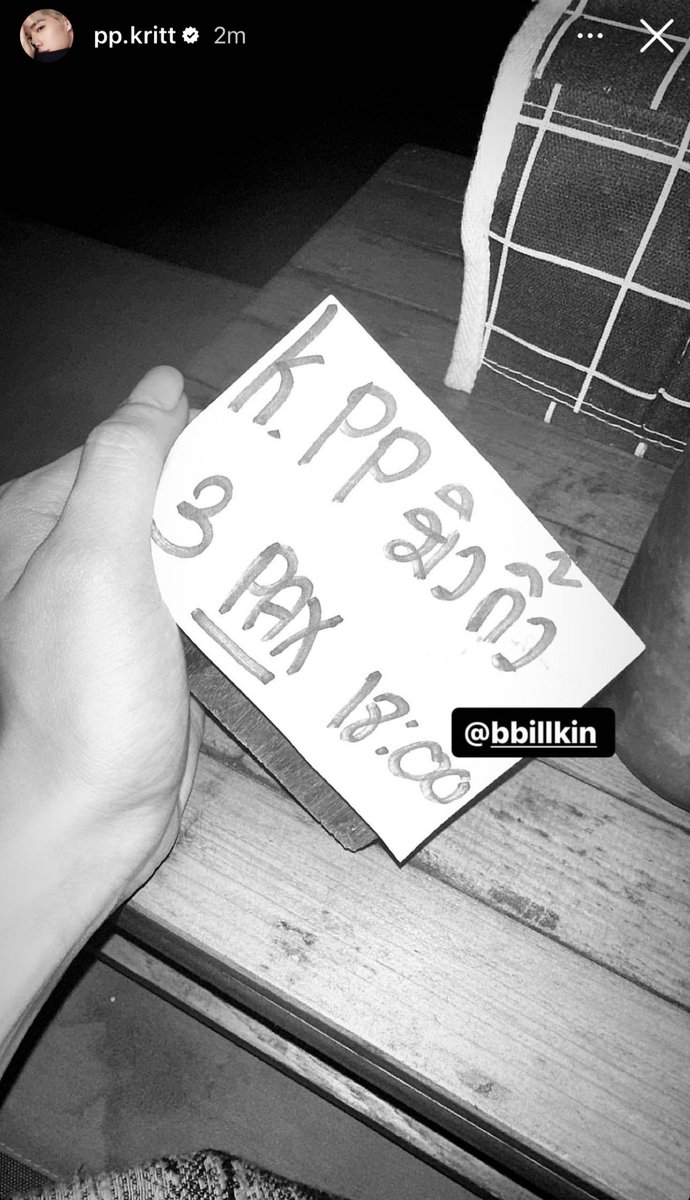 pp.kritt 2m
K. PP มิวกิ้ว
3 PAX 18:00
@bbillkin